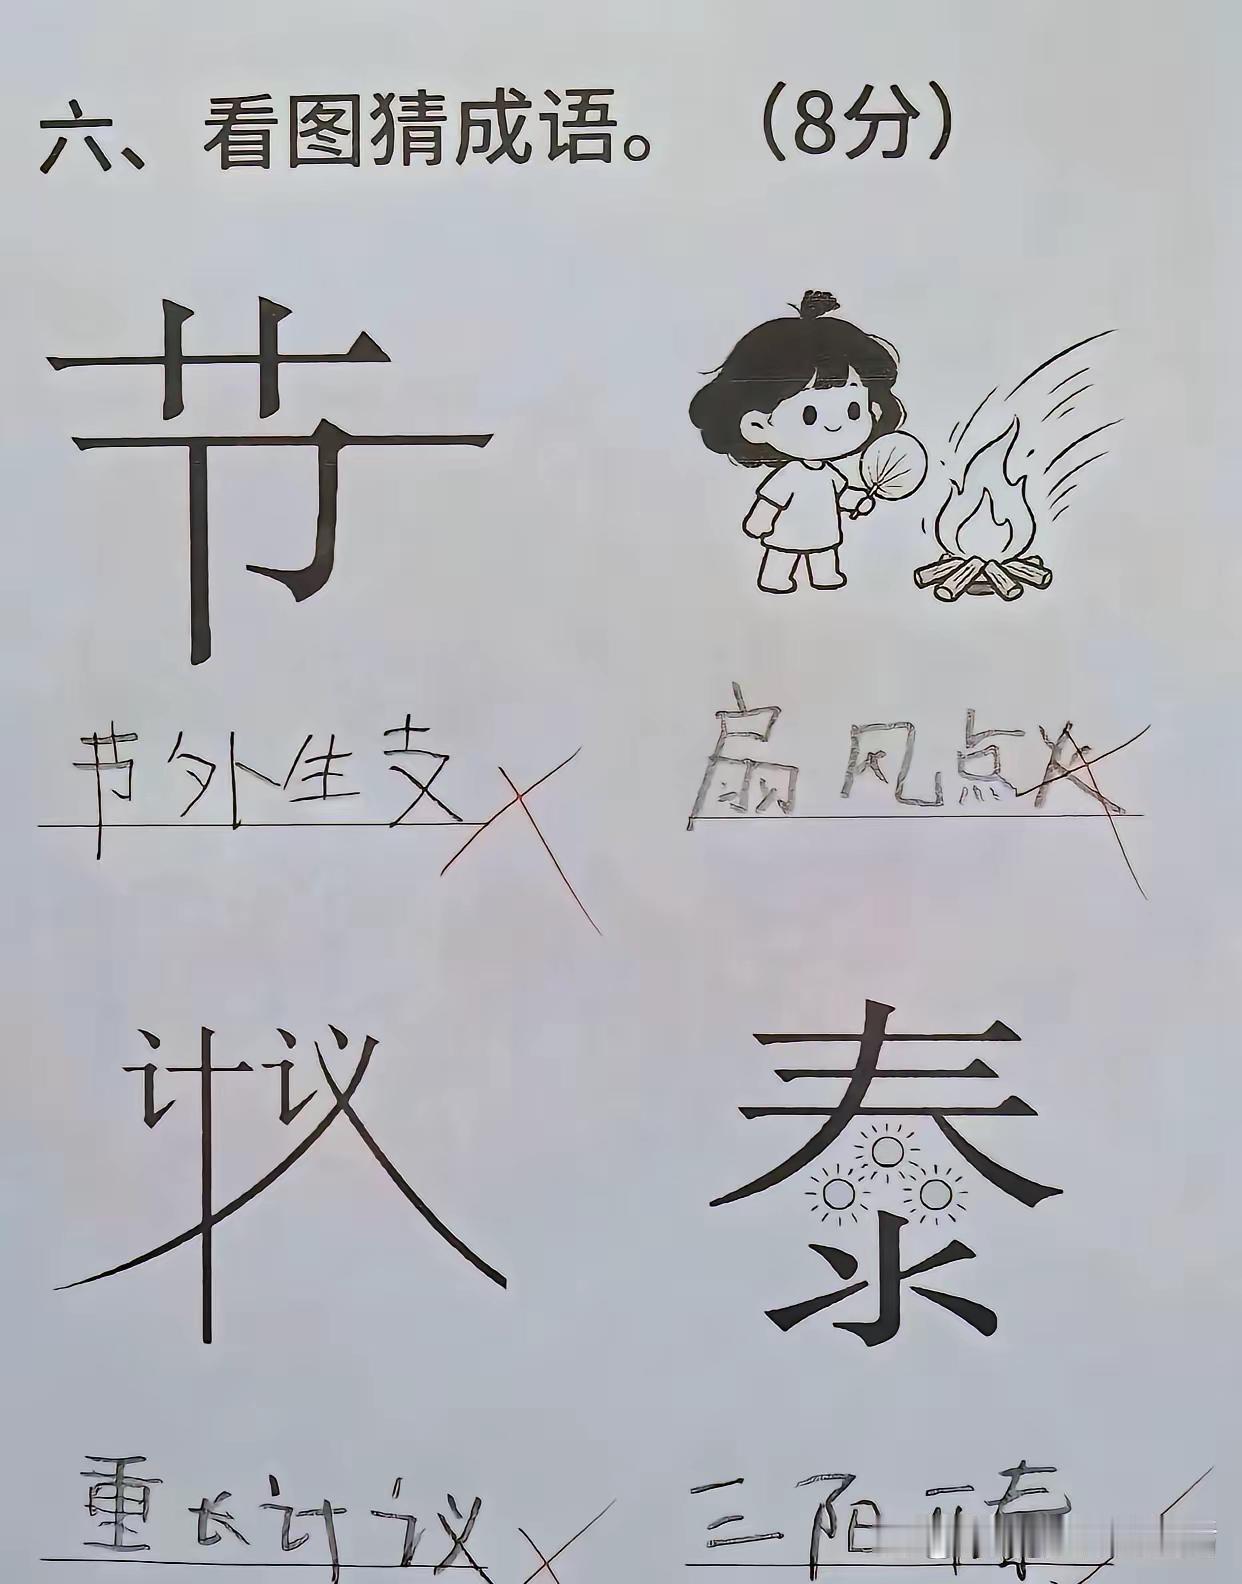 六、看图猜成语。（8分）
节
节外生支 扇风点火
计议 泰
重长计议 三阳开泰